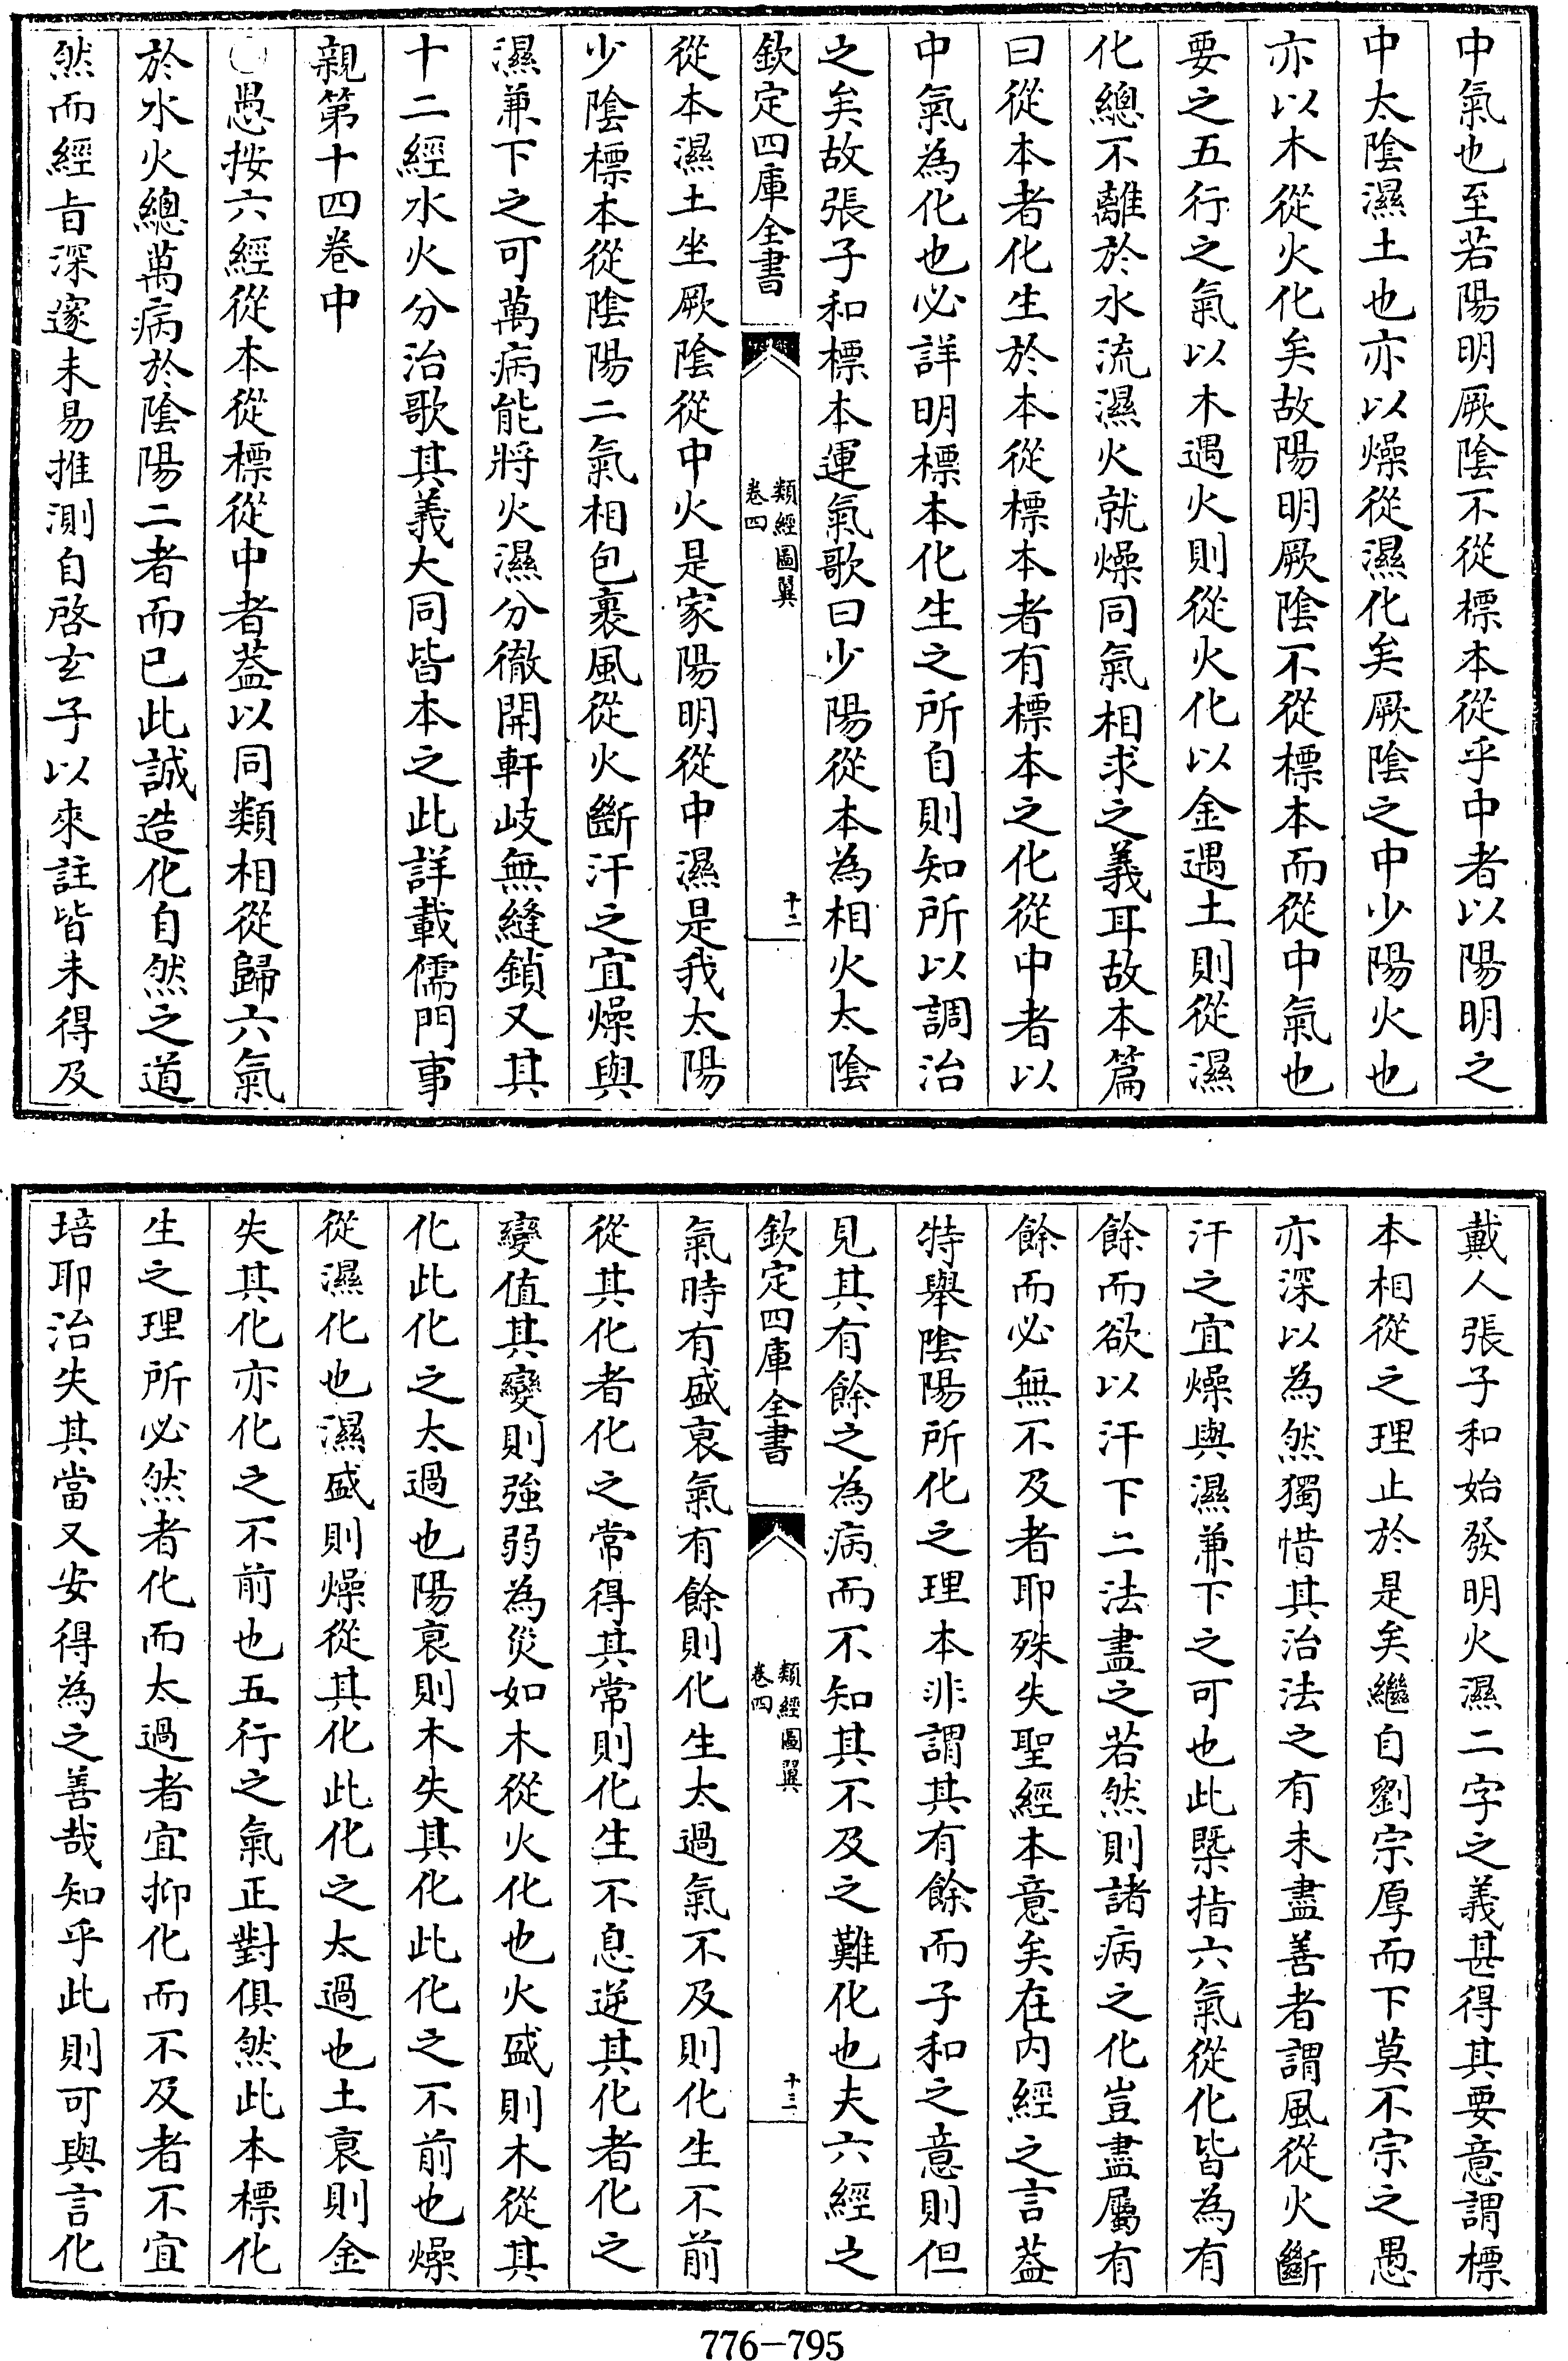 中氣也至若陽明厥陰不從標本從乎中者以陽明之
中太陰濕土也亦以燥從濕化矣厥陰之中少陽火也
亦以木從火化矣故陽明厥陰不從標本而從中氣也
要之五行之氣以木遇火則從火化以金遇土則從濕
化總不離於水流濕火就燥同氣相求之義耳故本篇
曰從本者化生於本從標本者有標本之化從中者以
中氣為化也必詳明標本化生之所自則知所以調治
之矣故張子和標本運氣歌曰少陽從本為相火太陰
欽定四庫全書
類經圖翼
卷四
十二
從本濕土坐厥陰從中火是家陽明從中濕是我太陽
少陰標本從陰陽二氣相包裹風從火斷汗之宜燥與
濕兼下之可萬病能將火濕分徹開軒岐無縫鎖又其
十二經水火分治歌其義大同皆本之此詳載儒門事
親第十四卷中
○愚按六經從本從標從中者葢以同類相從歸六氣
於水火總萬病於陰陽二者而已此誠造化自然之道
然而經旨深邃未易推測自啓玄子以來註皆未得及
戴人張子和始發明火濕二字之義甚得其要意謂標
本相從之理止於是矣繼自劉宗厚而下莫不宗之愚
亦深以為然獨惜其治法之有未盡善者謂風從火斷
汗之宜燥與濕兼下之可也此槩指六氣從化皆為有
餘而欲以汗下二法盡之若然則諸病之化豈盡屬有
餘而必無不及者耶殊失聖經本意矣在內經之言葢
特舉陰陽所化之理本非謂其有餘而子和之意則但
見其有餘之為病而不知其不及之難化也夫六經之
欽定四庫全書
類經圖翼
卷四
十三
氣時有盛衰氣有餘則化生太過氣不及則化生不前
從其化者化之常得其常則化生不息逆其化者化之
變值其變則強弱為災如木從火化也火盛則木從其
化此化之太過也陽衰則木失其化此化之不前也燥
從濕化也濕盛則燥從其化此化之太過也土衰則金
失其化亦化之不前也五行之氣正對俱然此本標化
生之理所必然者化而太過者宜抑化而不及者不宜
培耶治失其當又安得為之善哉知乎此則可與言化
776-795